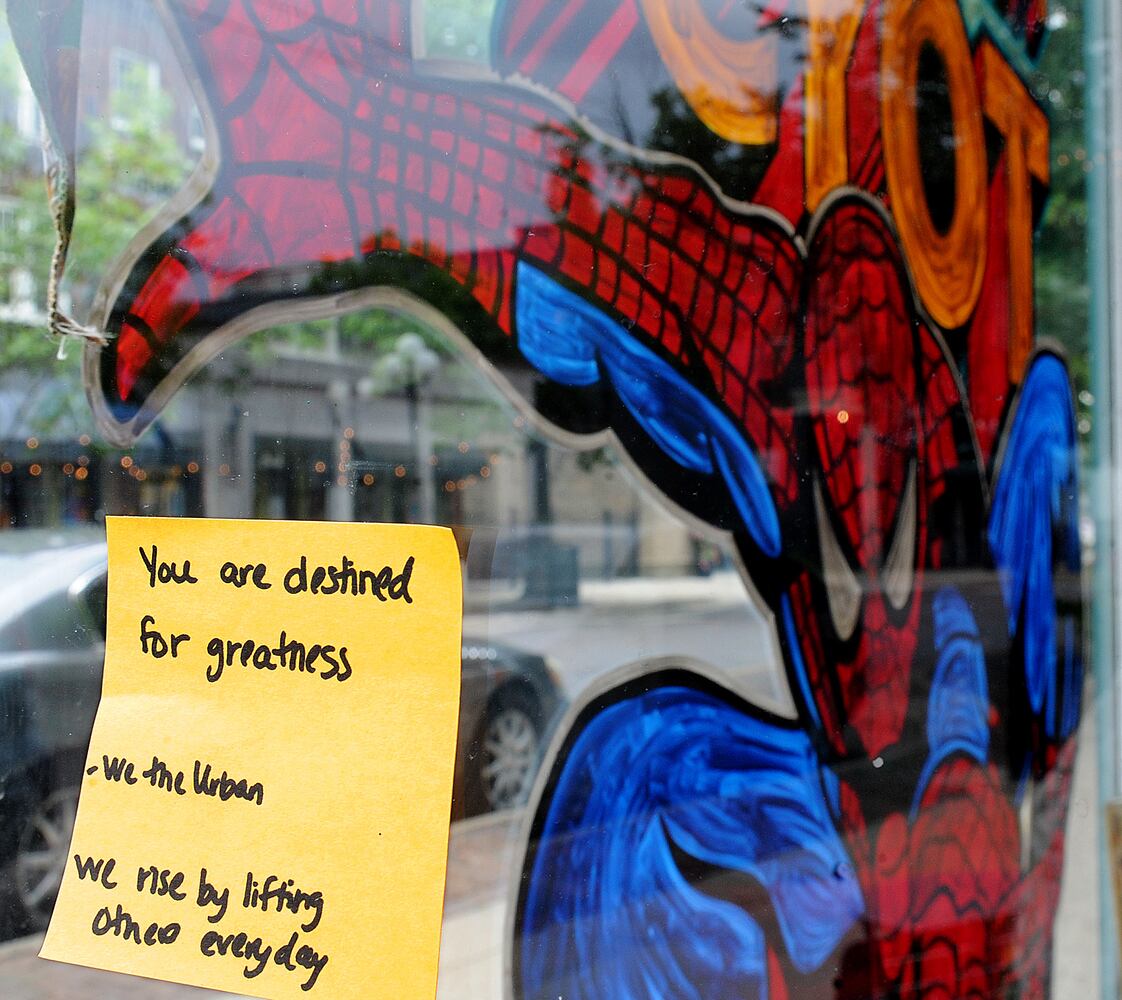 You are destined
for greatness
-We the Urban
We rise by lifting
others everyday